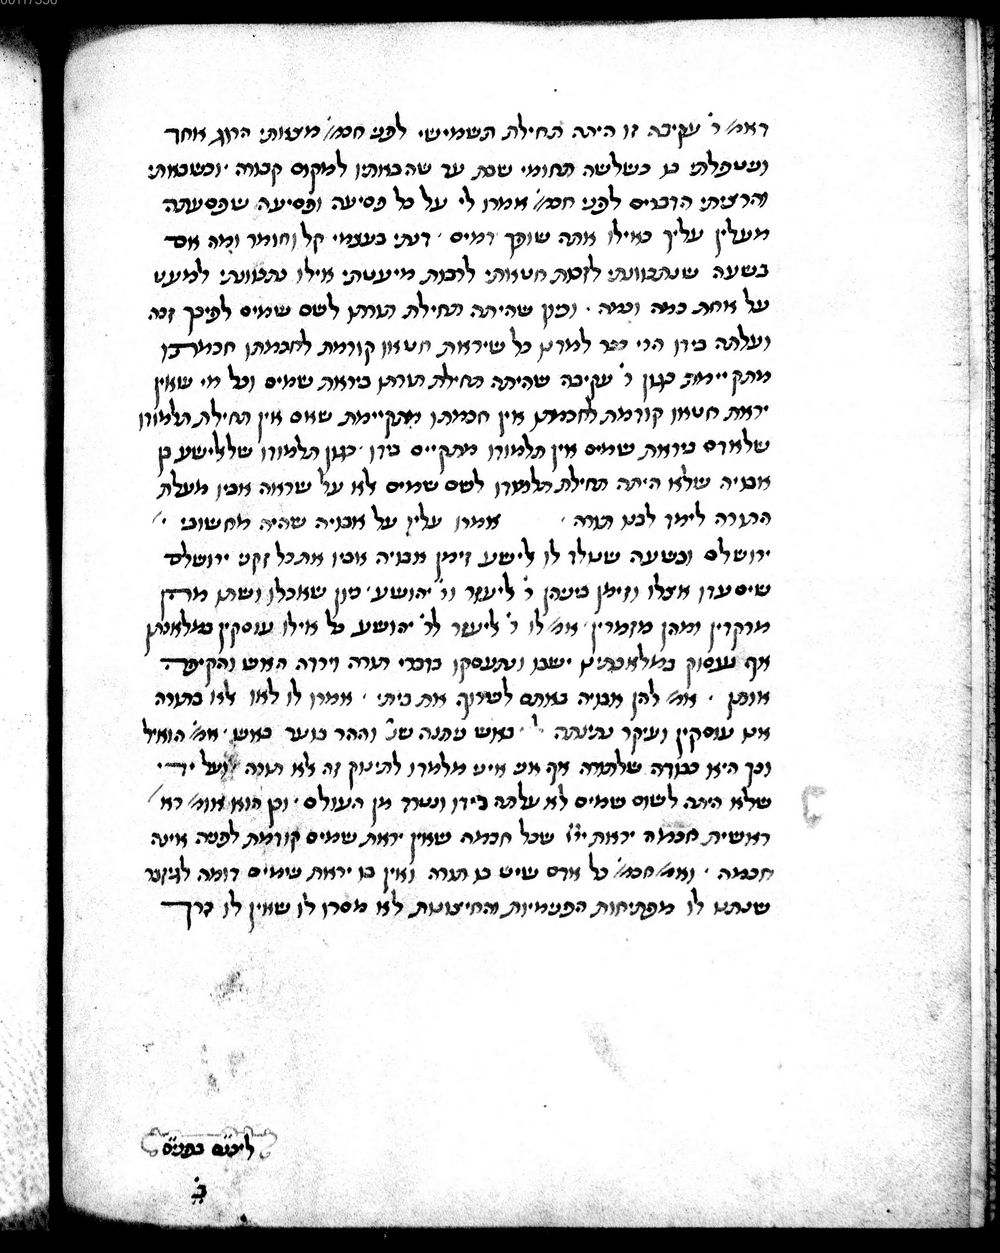 ואמ' ר' עקיבה זו היתה תחילת תשמישי לפני חכמ' מצאתי הרוג אחד
ונטפלתי בו כשלשה תחומי שבת עד שהבאתיו למקום קבורה וכשבאתי
והרציתי הדברים לפני חכמ' אמרו לי על כל פסיעה ופסיעה שפסעתה
מעלין עליך כאילו אתה שופך דמים דנתי בעצמי קל וחומר ומה אם
בשעה שנתכוונתי לזכות חטאתי לרבות מיעטתי אילו נתכוונתי למעט
על אחת כמה וכמה וכיון שהיתה תחילת תורתו לשם שמים לפיכך זכה
ועלתה בידו הרי כבר למדנו כל שיראת חטאו קודמת לחכמתו חכמתו
מתקיימת כגון ר' עקיבה שהיתה תחילת תורתו ביראת שמים וכל מי שאין
יראת חטאו קודמת לחכמתו אין חכמתו מתקיימת שאם אין תחילת תלמודו
שלאדם ביראת שמים אין תלמודו מתקיים בידו כגון תלמודו שלאלישע בן
אבויה שלא היתה תחילת תלמודו לשם שמים אלא על שראה אביו מעלת
התורה לימד לבנו תורה אמרו עליו על אבויה שהיה מחשובי
ירושלם ובשעה שנולד לו אלישע זימן אבויה אביו את כל זקני ירושלם
שיסעדו אצלו וזימן ביניהן ר' ליעזר ור' יהושע כיון שאכלו ושתו
מרקדין ומהן מזמרין אמ' לו ר' ליעזר לר' יהושע כל אילו עוסקין במלאכתן
אף נעסוק במלאכתינו ישבו ונתעסקו בדברי תורה וירדה האש והקיפה
אותן אמ' להן אבויה באתם לשרוף את ביתי אמרו לו לאו אלא בתורה
אנו עוסקין ועיקר נתינתה באש נתנה שנ' וההר בוער באש אמ' הואיל
וכך היא כבודה שלתורה אף אני איני מלמדו לתינוק זה אלא תורה ועל ידי
שלא היתה לשום שמים לא עלתה בידו ונטרד מן העולם וכן הוא אומ'
ראשית חכמה יראת ייי שכל חכמה שאין יראת שמים קודמת לפניה אינה
חכמה ואמ' חכמ' כל אדם שיש בו תורה ואין בו יראת שמים דומה לגיזבר
שנתנו לו מפתיחות הפנימיות והחיצונות לא מסרו לו שאין לו דרך